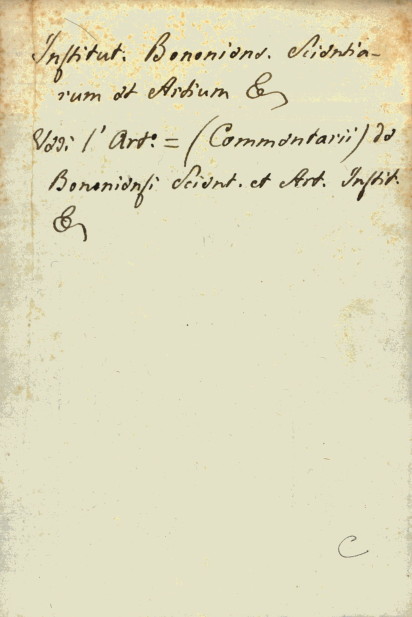 Institut. Bononiens. Scientia-
rum et Artium &
Vedi l' Art.º = (Commentarii) de
Bononiensi Scient. et Art. Instit.
&
C